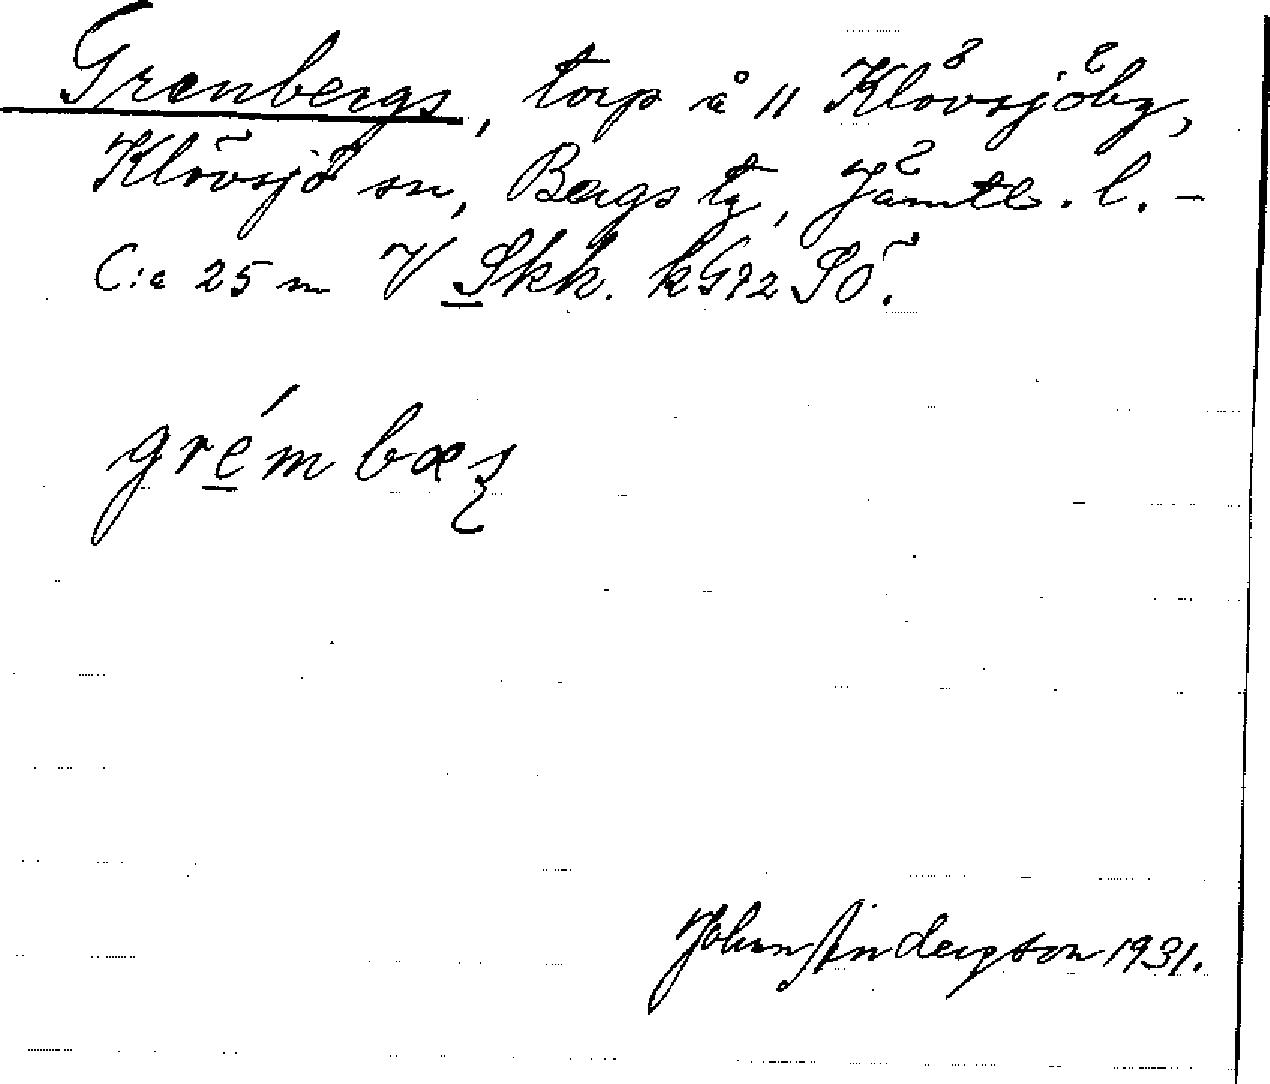 Grenbergs, torp å 11 Klövsjöby,
Klövsjö sn, Bergs tg, Jämtl. l. -
C:a 25 m V Skk. kG72 SÖ.
grémbæʂ
John Anderson 1931.